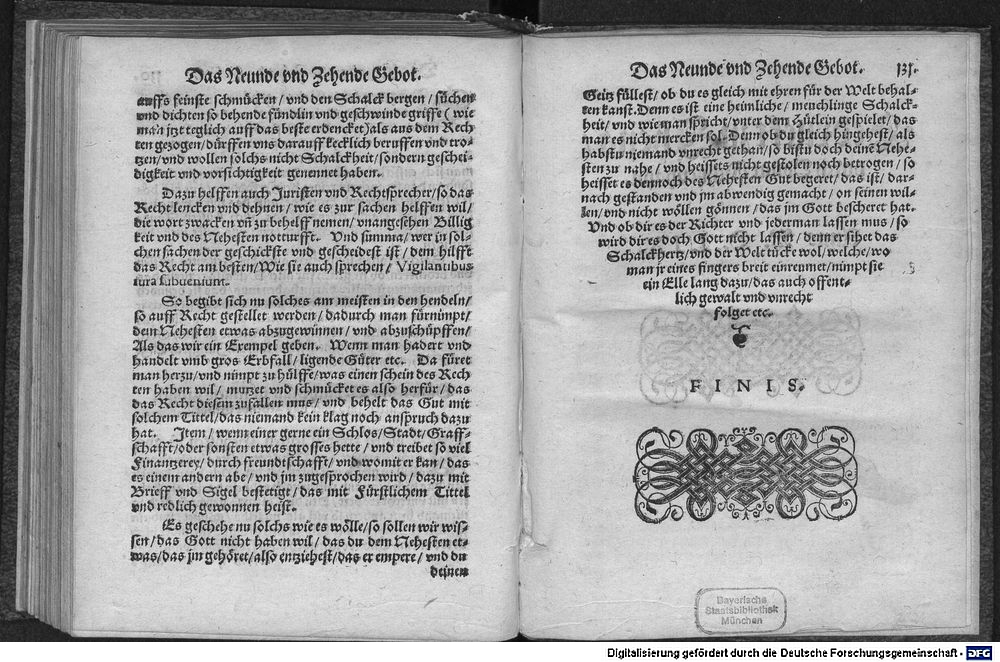 Das Neunde vnd Zehende Gebot.
auffs feinste schmücken / vnd den Schalck bergen / süchen
vnd dichten so behende fündlin vnd geschwinde griffe ( wie
man jtzt teglich auff das beste erdencket) als aus dem Rech
ten gezogen / dürffen vns darauff kecklich beruffen vnd tro-
tzen / vnd wollen solchs nicht Schalckheit / sondern geschei-
digkeit vnd vorsichtigkeit genennet haben.
Dazu helffen auch Juristen vnd Rechtsprecher / so das
Recht lencken vnd dehnen / wie es zur sachen helffen wil /
die wort zwacken vñ zu behelff nemen / vnangesehen Billig
keit vnd des Nehesten notturfft. Vnd summa / wer in sol-
chen sachen der geschickste vnd gescheidest ist / dem hilfft
das Recht am besten / Wie sie auch sprechen / Vigilantibus
iura subueniunt.
So begibt sich nu solches am meisten in den hendeln /
so auff Recht gestellet werden / dadurch man fürnimpt /
dem Nehesten etwas abzugewinnen / vnd abzuschüpffen /
Als das wir ein Exempel geben. Wenn man hadert vnd
handelt vmb gros Erbfall / ligende Güter etc. Da füret
man herzu / vnd nimpt zu hülffe / was einen schein des Rech
ten haben wil / mutzet vnd schmücket es also herfür / das
das Recht diesem zufallen mus / vnd behelt das Gut mit
solchem Tittel / das niemand kein klag noch anspruch dazu
hat. Item / wenn einer gerne ein Schlos / Stadt / Graff-
schafft / oder sonsten etwas grosses hette / vnd treibet so viel
Finantzerey / durch freundtschafft / vnd womit er kan / das
es einem andern abe / vnd jm zugesprochen wird / dazu mit
Brieff vnd Sigel bestetigt / das mit Fürstlichem Tittel
vnd redlich gewonnen heist.
Es geschehe nu solchs wie es wölle / so sollen wir wis-
sen / das Gott nicht haben wil / das du dem Nehesten et-
was / das jm gehöret / also entziehest / das er empere / vnd du
deinen
Das Neunde vnd Zehende Gebot. 131.
Geitz füllest / ob du es gleich mit ehren für der Welt behal-
ten kanst. Denn es ist eine heimliche / meuchlinge Schalck-
heit / vnd wie man spricht / vnter dem Hütlein gespielet / das
man es nicht mercken sol. Denn ob du gleich hingehest / als
habstu niemand vnrecht gethan / so bistu doch deine Nehe-
sten zu nahe / vnd heissets nicht gestolen noch betrogen / so
heisset es dennoch des Nehesten Gut begeret / das ist / dar-
nach gestanden vnd jm abwendig gemacht / on seinen wil-
len / vnd nicht wöllen gönnen / das jm Gott bescheret hat.
Vnd ob dir es der Richter vnd jederman lassen mus / so
wird dir es doch Gott nicht lassen / denn er sihet das
Schalckhertz / vnd der Welt tücke wol / welche / wo
man jr eines fingers breit einreumet / nimpt sie
ein Elle lang dazu / das auch offent-
lich gewalt vnd vnrecht
folget etc.
FINIS.
Bayerische
Staatsbibliothek
München
Digitalisierung gefördert durch die Deutsche Forschungsgemeinschaft - DFG